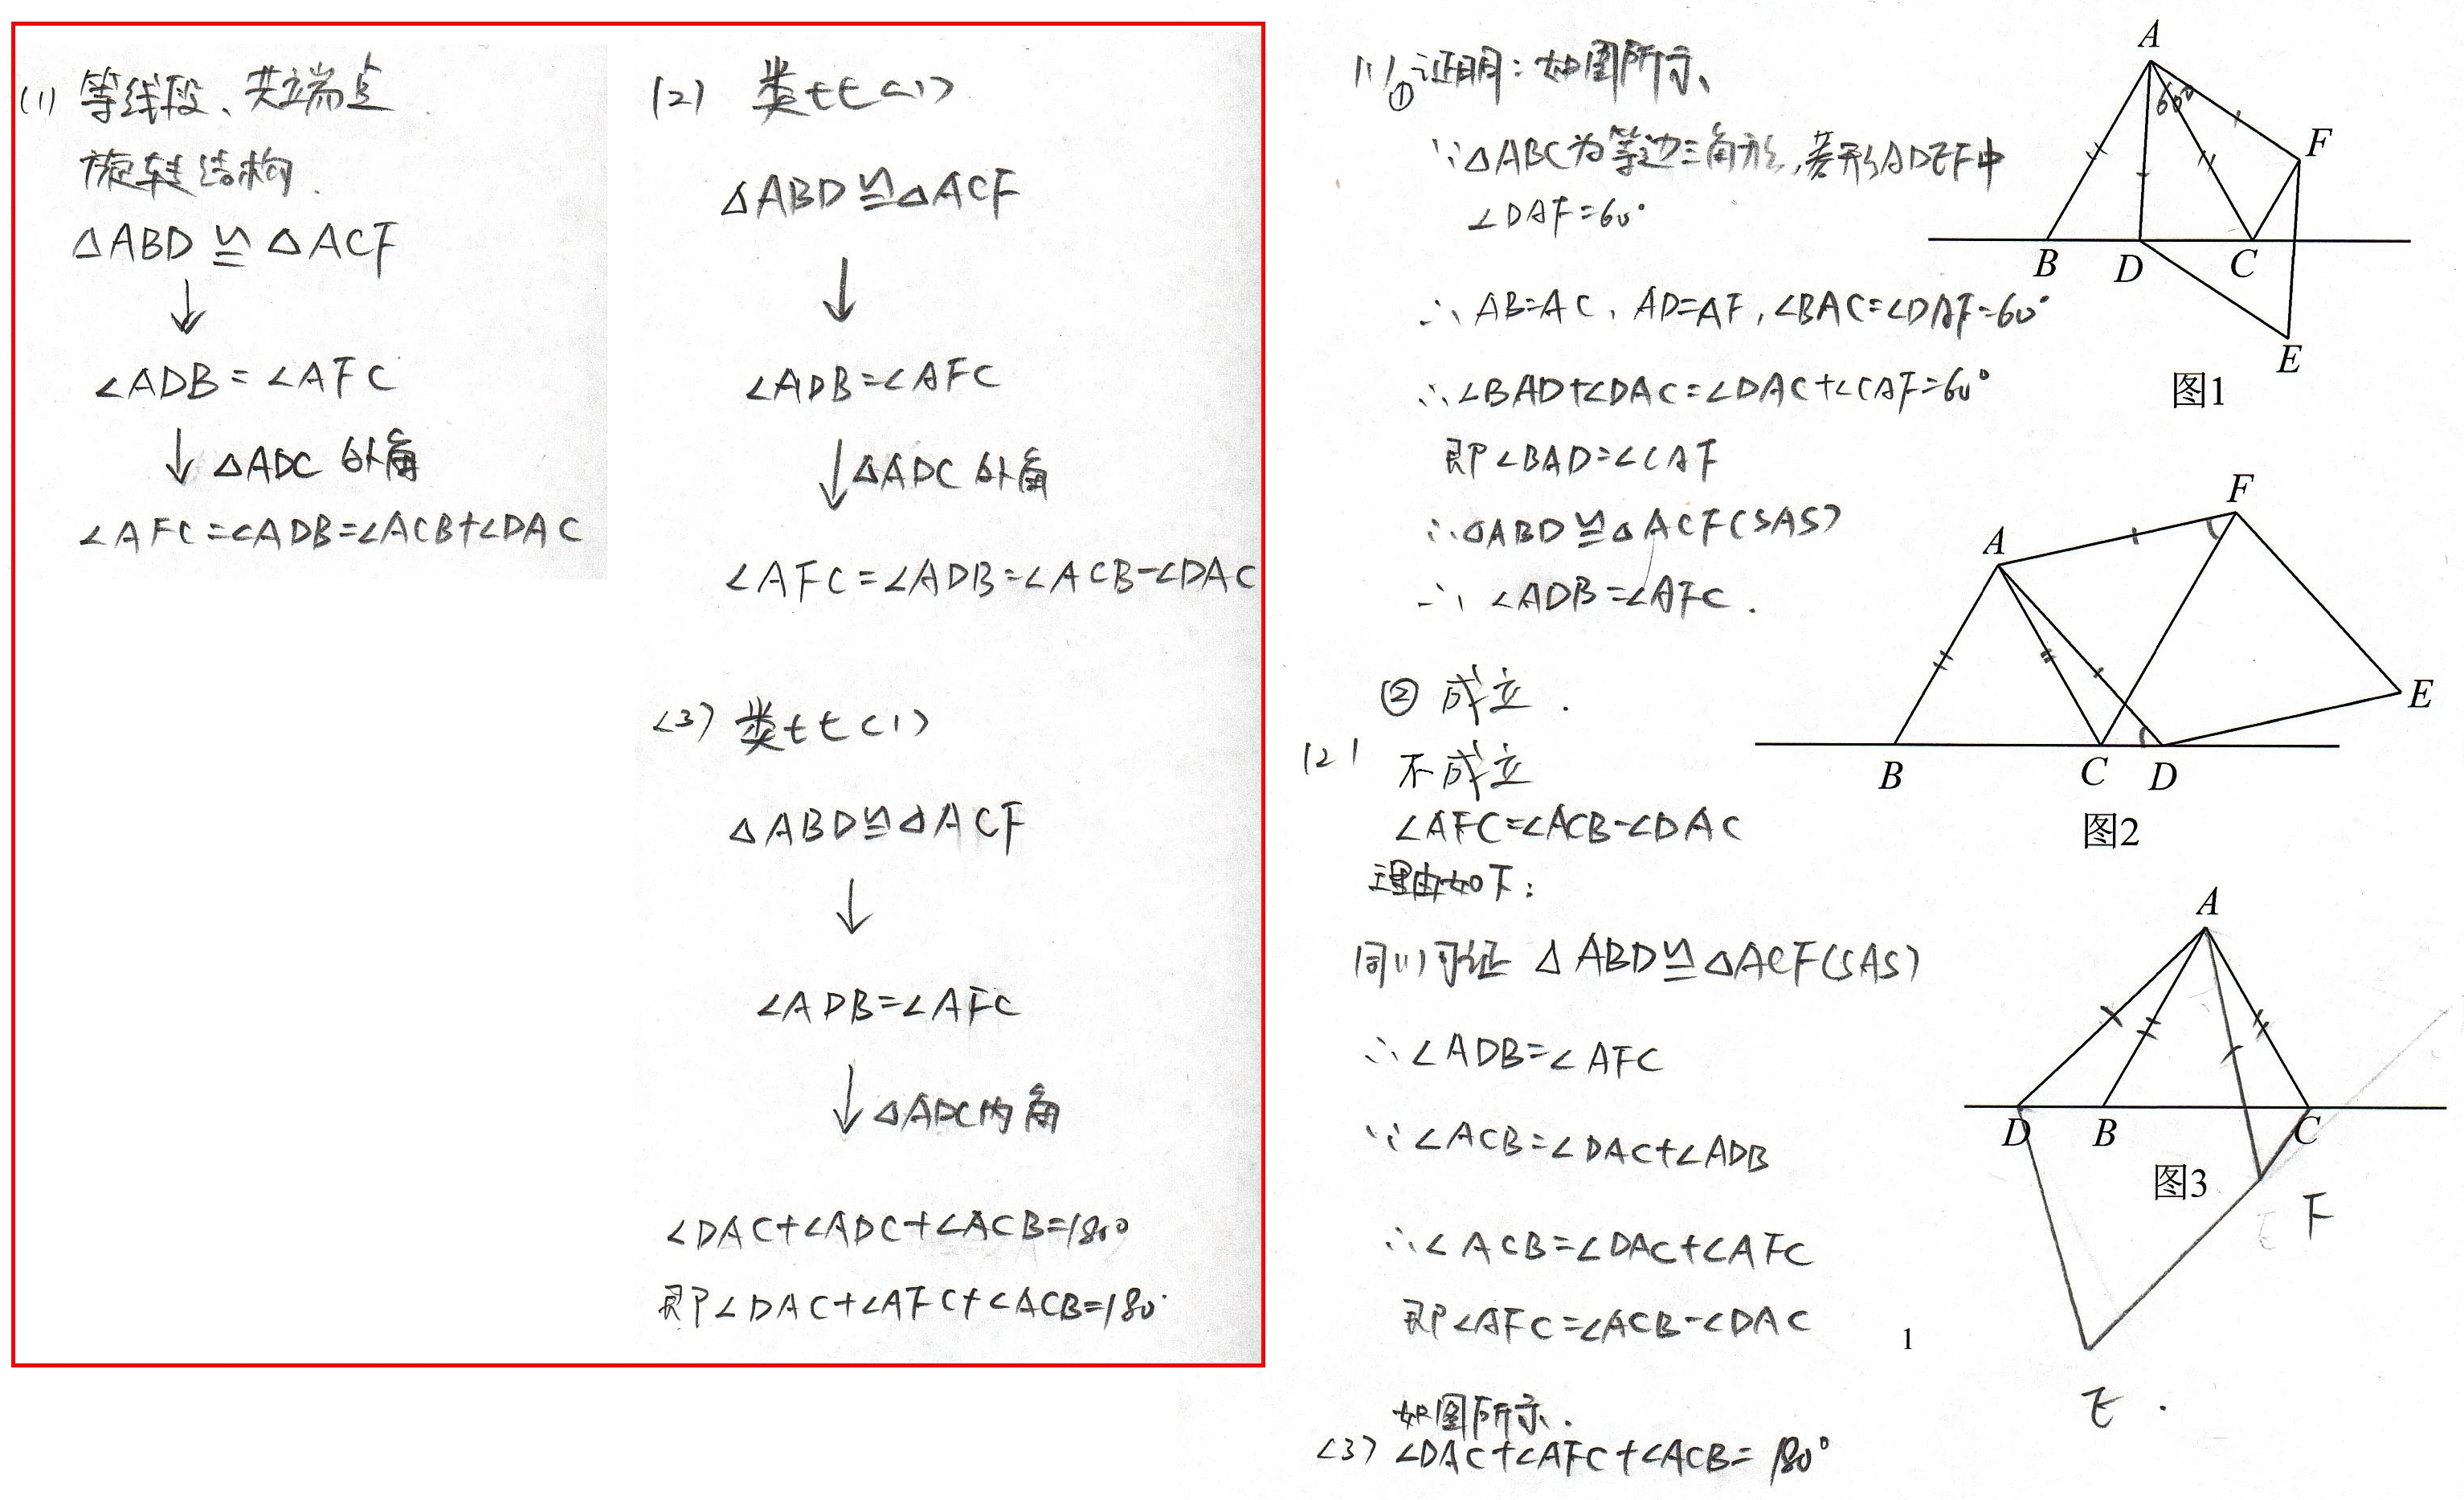 (1) 等线段、共端点
旋转结构.
△ABD≌△ACF
↓
∠ADB=∠AFC
↓ △ADC 外角
∠AFC=∠ADB=∠ACB+∠DAC
(2) 类比(1)
△ABD≌△ACF
↓
∠ADB=∠AFC
↓ △ADC 外角
∠AFC=∠ADB=∠ACB-∠DAC
(3) 类比(1)
△ABD≌△ACF
↓
∠ADB=∠AFC
↓ △ADC内角
∠DAC+∠ADC+∠ACB=180°
即∠DAC+∠AFC+∠ACB=180°
(1)①证明:如图所示、
∵△ABC为等边三角形,菱形ADEF中
∠DAF=60°
∴AB=AC,AD=AF,∠BAC=∠DAF=60°
∴∠BAD+∠DAC=∠DAC+∠CAF=60°
即∠BAD=∠CAF
∴△ABD≌△ACF(SAS)
∴∠ADB=∠AFC.
② 成立.
(2) 不成立
∠AFC=∠ACB-∠DAC
理由如下:
同(1)可证 △ABD≌△ACF(SAS)
∴∠ADB=∠AFC
∵∠ACB=∠DAC+∠ADB
∴∠ACB=∠DAC+∠AFC
即∠AFC=∠ACB-∠DAC
如图所示.
(3) ∠DAC+∠AFC+∠ACB=180°
A
60°
F
B D C
E
图1
F
A
E
B C D
图2
A
D B C
图3
F
E
1